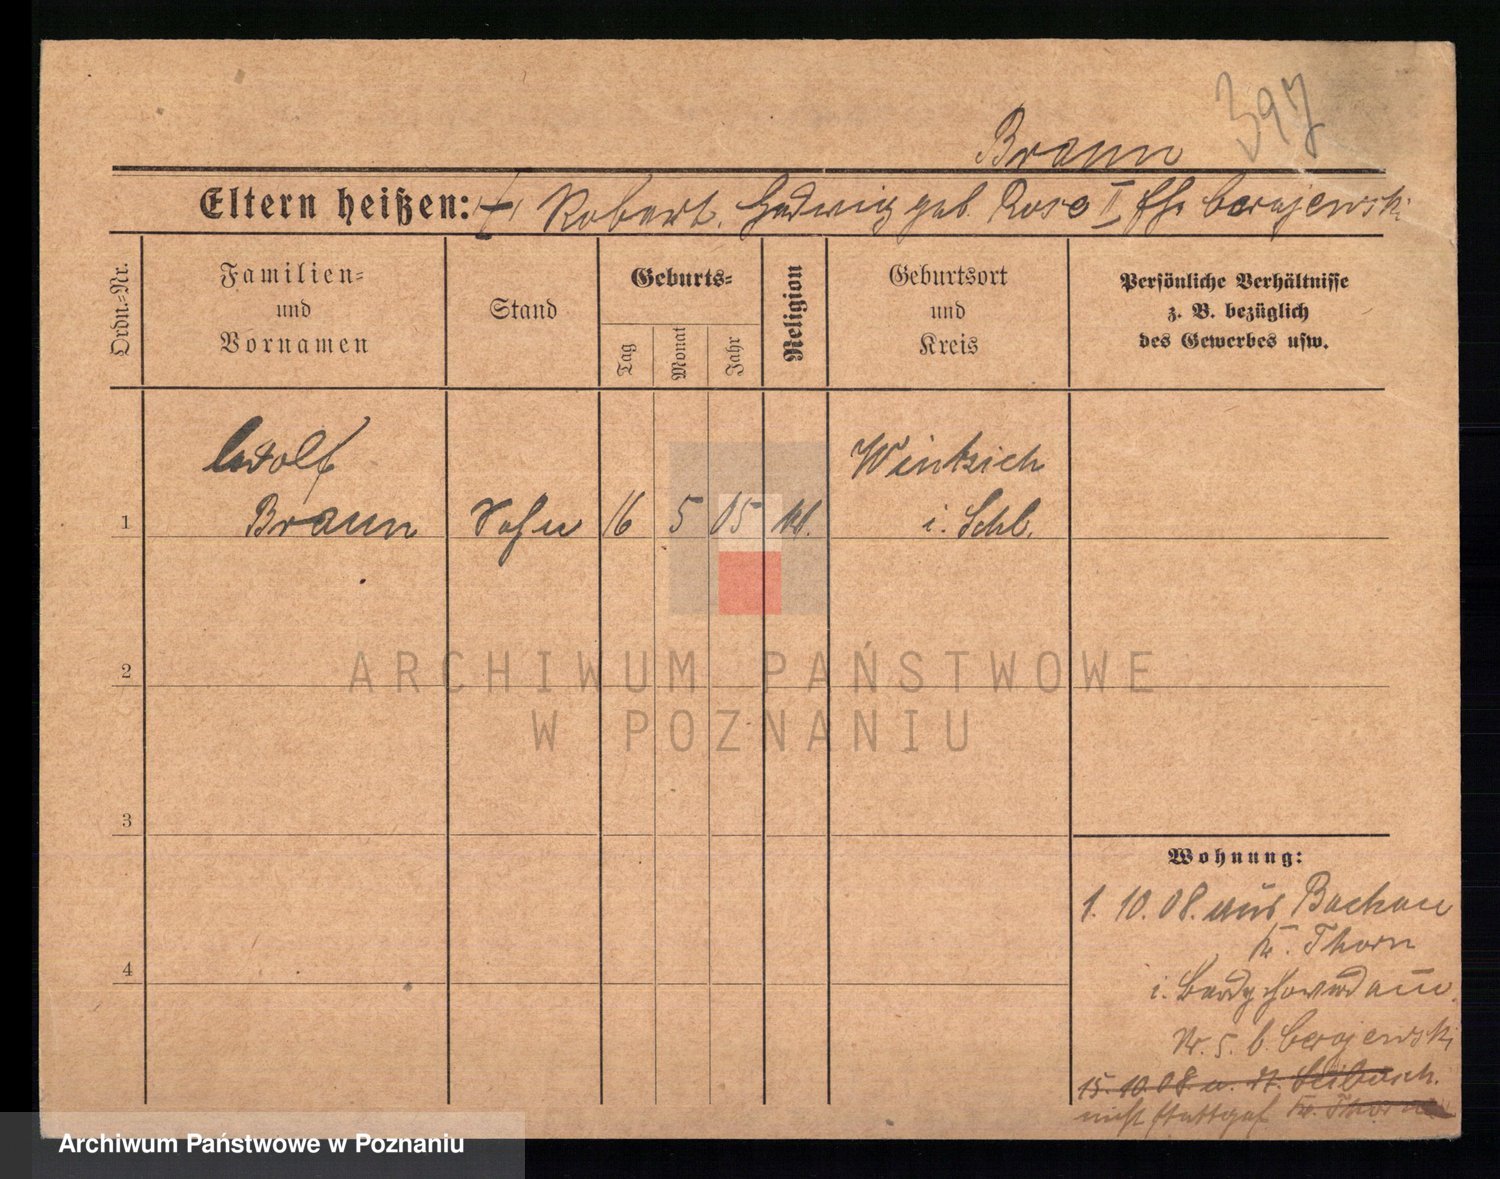 397
Braun
Eltern heißen: † Robert. Hedwig geb. Rose II Eh.
Ordn.=Nr.
Familien=
und
Vornamen
Stand
Geburts=
Tag
Monat
Jahr
Religion
Geburtsort
und
Kreis
Persönliche Verhältnisse
z. B. bezüglich
des Gewerbes usw.
Adolf
Braun
1
Sohn
16
5
05
Winkzich
i. Schl.
2
ARCHIWUM PAŃSTWOWE
W POZNANIU
3
4
Wohnung:
1. 10. 08. aus Bachau
Kr. Thorn
i.
Nr. 5. b.
15. 10. 08. n.
nicht stattgef. Kr. Thorn
Archiwum Państwowe w Poznaniu